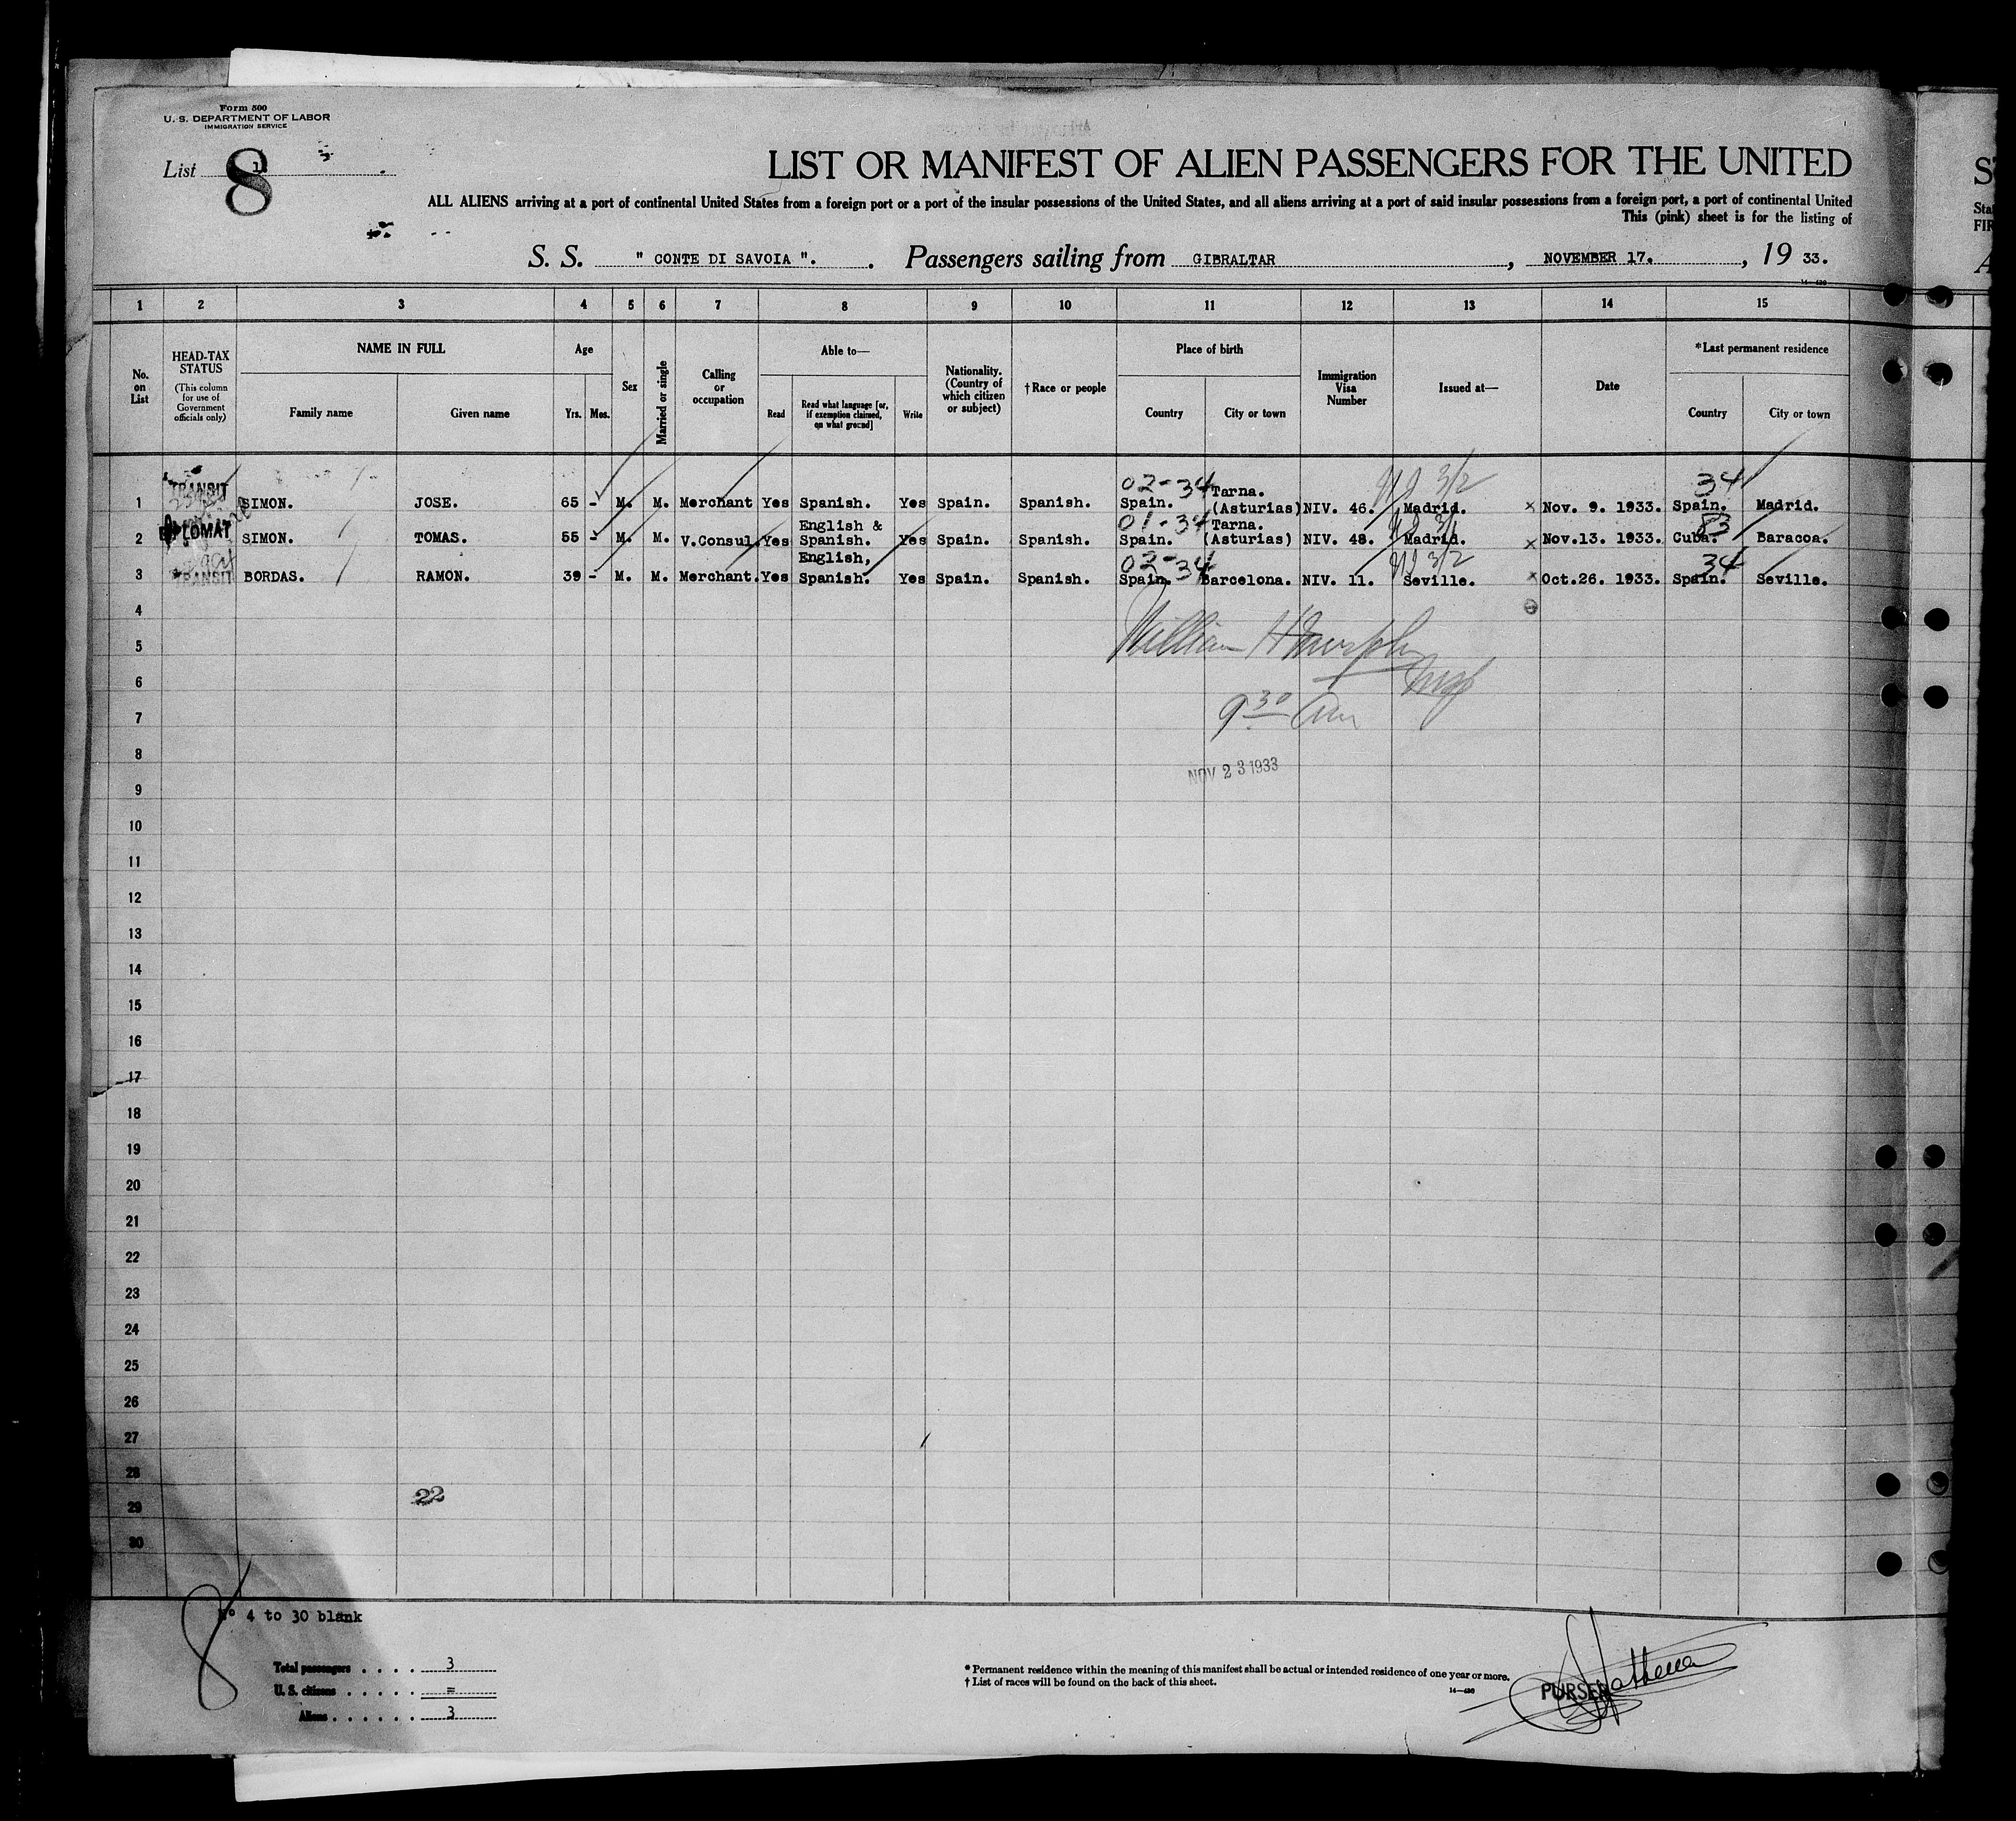 Form 500
U. S. DEPARTMENT OF LABOR
IMMIGRATION SERVICE
List 1
8
LIST OR MANIFEST OF ALIEN PASSENGERS FOR THE UNITED
ALL ALIENS arriving at a port of continental United States from a foreign port or a port of the insular possessions of the United States, and all aliens arriving at a port of said insular possessions from a foreign port, a port of continental United
This (pink) sheet is for the listing of
S. S. " CONTE DI SAVOIA ". . Passengers sailing from GIBRALTAR , NOVEMBER 17. , 19 33.
14—430
1 2 3 4 5 6 7 8 9 10 11 12 13 14 15
No. on List
HEAD-TAX STATUS (This column for use of Government officials only)
NAME IN FULL
Family name Given name
Age
Yrs. Mos.
Sex
Married or single
Calling or occupation
Able to—
Read
Read what language [or, if exemption claimed, on what ground]
Write
Nationality. (Country of which citizen or subject)
† Race or people
Place of birth
Country City or town
Immigration Visa Number
Issued at—
Date
* Last permanent residence
Country City or town
02-34 3/2 34
1 TRANSIT SIMON. JOSE. 65 - M. M. Merchant Yes Spanish. Yes Spain. Spanish. Spain. Tarna. (Asturias) NIV. 46. Madrid. x Nov. 9. 1933. Spain. Madrid.
01-34 3/1 53
2 DIPLOMAT SIMON. TOMAS. 55 - M. M. V.Consul. Yes English & Spanish. Yes Spain. Spanish. Spain. Tarna. (Asturias) NIV. 48. Madrid. x Nov.13. 1933. Cuba. Baracoa.
02-34 3/2 34
3 TRANSIT BORDAS. RAMON. 39 - M. M. Merchant. Yes English, Spanish. Yes Spain. Spanish. Spain. Barcelona. NIV. 11. Seville. x Oct.26. 1933. Spain. Seville.
4
5 William H Murphy
6 Insp
7 9 30 am
8 NOV 23 1933
9
10
11
12
13
14
15
16
17
18
19
20
21
22
23
24
25
26
27
28
29 22
30
8
No 4 to 30 blank
Total passengers . . . . 3
U. S. citizens . . . . . =
Aliens . . . . . . 3
* Permanent residence within the meaning of this manifest shall be actual or intended residence of one year or more.
† List of races will be found on the back of this sheet.
14—430
PURSER